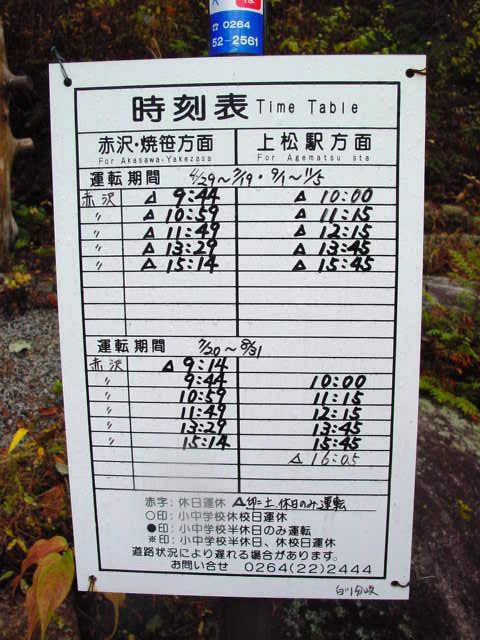 ☎ 0264
52-2561
時刻表 Time Table
赤沢・焼笹方面 上松駅方面
For Akasawa-Yakezasa For Agematsu sta
運転期間 4/29～7/19・9/1～11/5
赤沢 △ 9:44 △ 10:00
〃 △ 10:59 △ 11:15
〃 △ 11:49 △ 12:15
〃 △ 13:29 △ 13:45
〃 △ 15:14 △ 15:45
運転期間 7/20～8/31
赤沢 △ 9:14
〃 9:44 10:00
〃 10:59 11:15
〃 11:49 12:15
〃 13:29 13:45
〃 15:14 15:45
△ 16:05
赤字: 休日運休 △印=土.休日のみ運転
○印: 小中学校休校日運休
●印: 小中学校半休日のみ運転
※印: 小中学校半休日、休校日運休
道路状況により遅れる場合があります。
お問い合せ 0264(22)2444